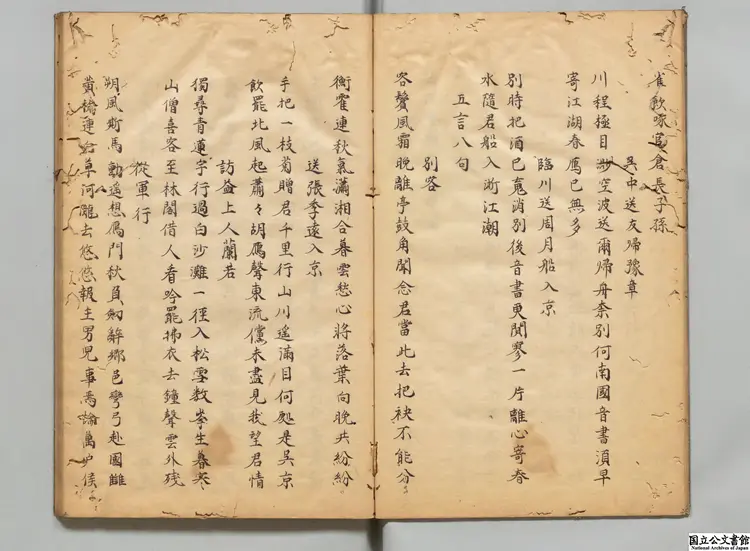 雀飲啄官倉長子孫
呉中送友帰豫章
川程極目渺空波送爾帰舟奈別何南國音書湏早
寄江湖春鴈已無多
臨川送周月船入京
別時把酒已䰟消別後音書更聞寥一片離心寄春
水隨君船入浙江潮
五言八句
別客
客鬢風霜晚離亭鼓角聞念君當此去把袂不能分
衡霍連秋氣瀟湘合暮雲愁心将落葉向晚共紛紛
送張季遠入京
手把一枝菊贈君千里行山川遥滿目何処是呉京
飲罷北風起蕭々胡鴈聲東流儻未盡見我望君情
訪益上人蘭若
獨尋青蓮宇行過白沙灘一徑入松雪数峯生暮寒
山僧喜客至林閣借人看吟罷拂衣去鐘聲雲外残
從軍行
朔風嘶馬動遥想鴈門秋負劔辭鄉邑彎弓赴國讎
黄榆連塞草河隴去悠悠報主男兒事焉論萬户侯
国立公文書館
National Archives of Japan